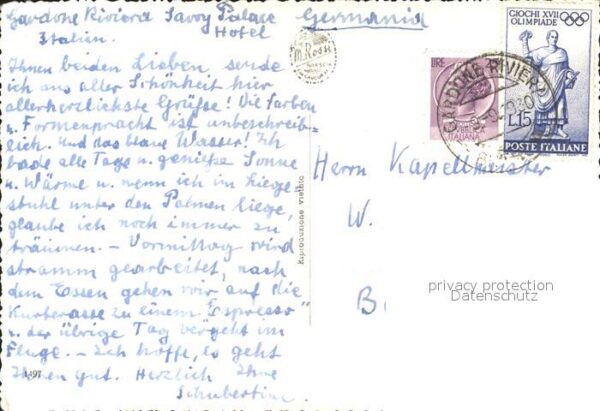 Gardone Riviera Savoy Palace
Hotel
Italien.
Germania
Ihnen beiden Lieben sende
ich aus aller Schönheit hier
allerherzlichste Grüße! Die Farben
u. Formenpracht ist unbeschreib-
lich. Und das blaue Wasser! Ich
bade alle Tage u. genieße Sonne
u. Wärme u. wenn ich im Liege-
stuhl unter den Palmen liege,
glaube ich noch immer zu
träumen. – Vormittag wird
stramm gearbeitet, nach
dem Essen gehen wir auf die
Kurterasse zu einem "Espresso"
u. der übrige Tag vergeht im
Fluge. – Ich hoffe, es geht
Ihnen gut. Herzlich Ihre
Schubertine
1497
Riproduzione vietata
GIOCHI XVII
OLIMPIADE
L.15
POSTE ITALIANE
LIRE
ITALIANA
GARDONE RIVIERA
Herrn Kapellmeister
W.
B.
privacy protection
Datenschutz